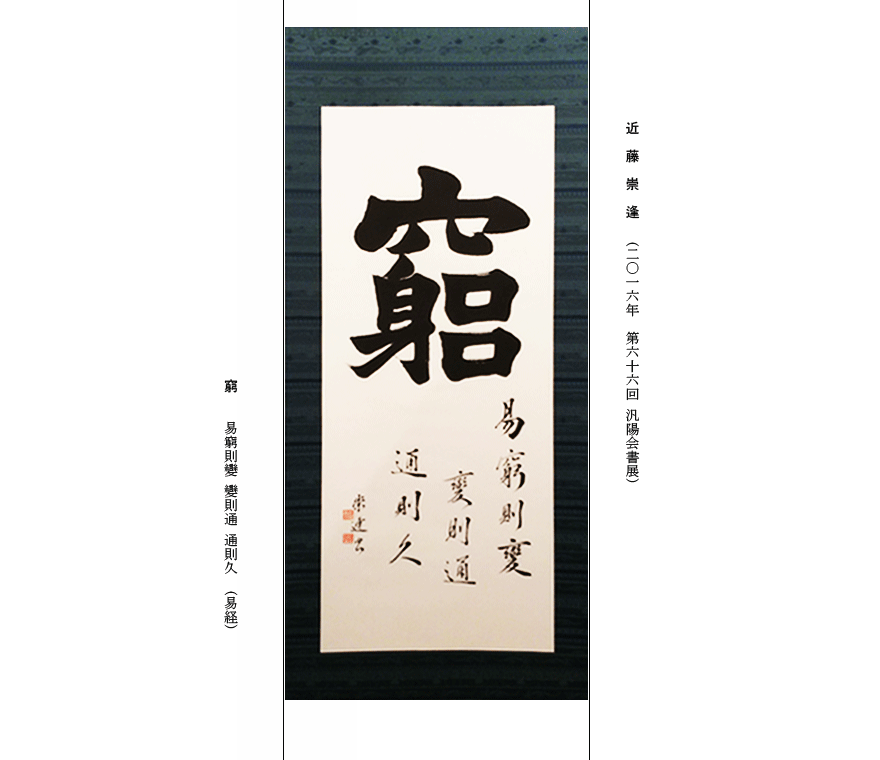 近藤崇逢 （二〇一六年 第六十六回 汎陽会書展）
窮
易窮則變
變則通
通則久
窮 易窮則變 變則通 通則久 （易経）